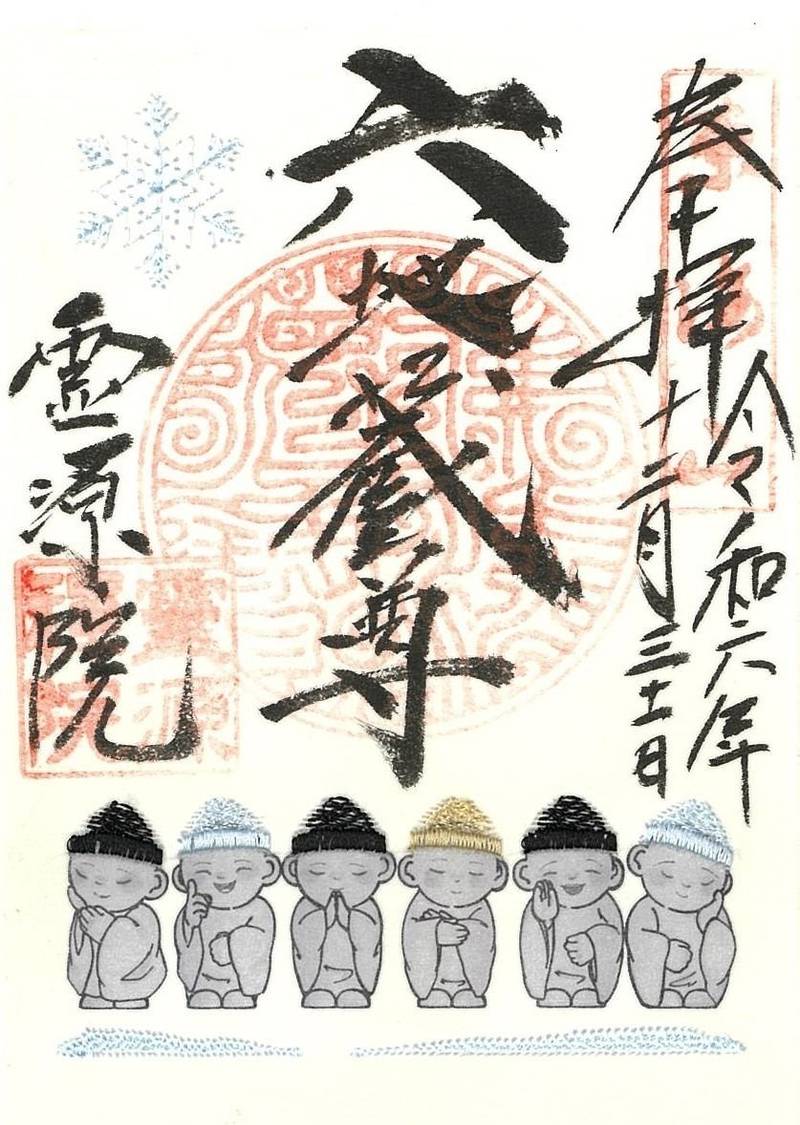 奉拝
令和六年
十二月三十一日
六地蔵尊
霊源院